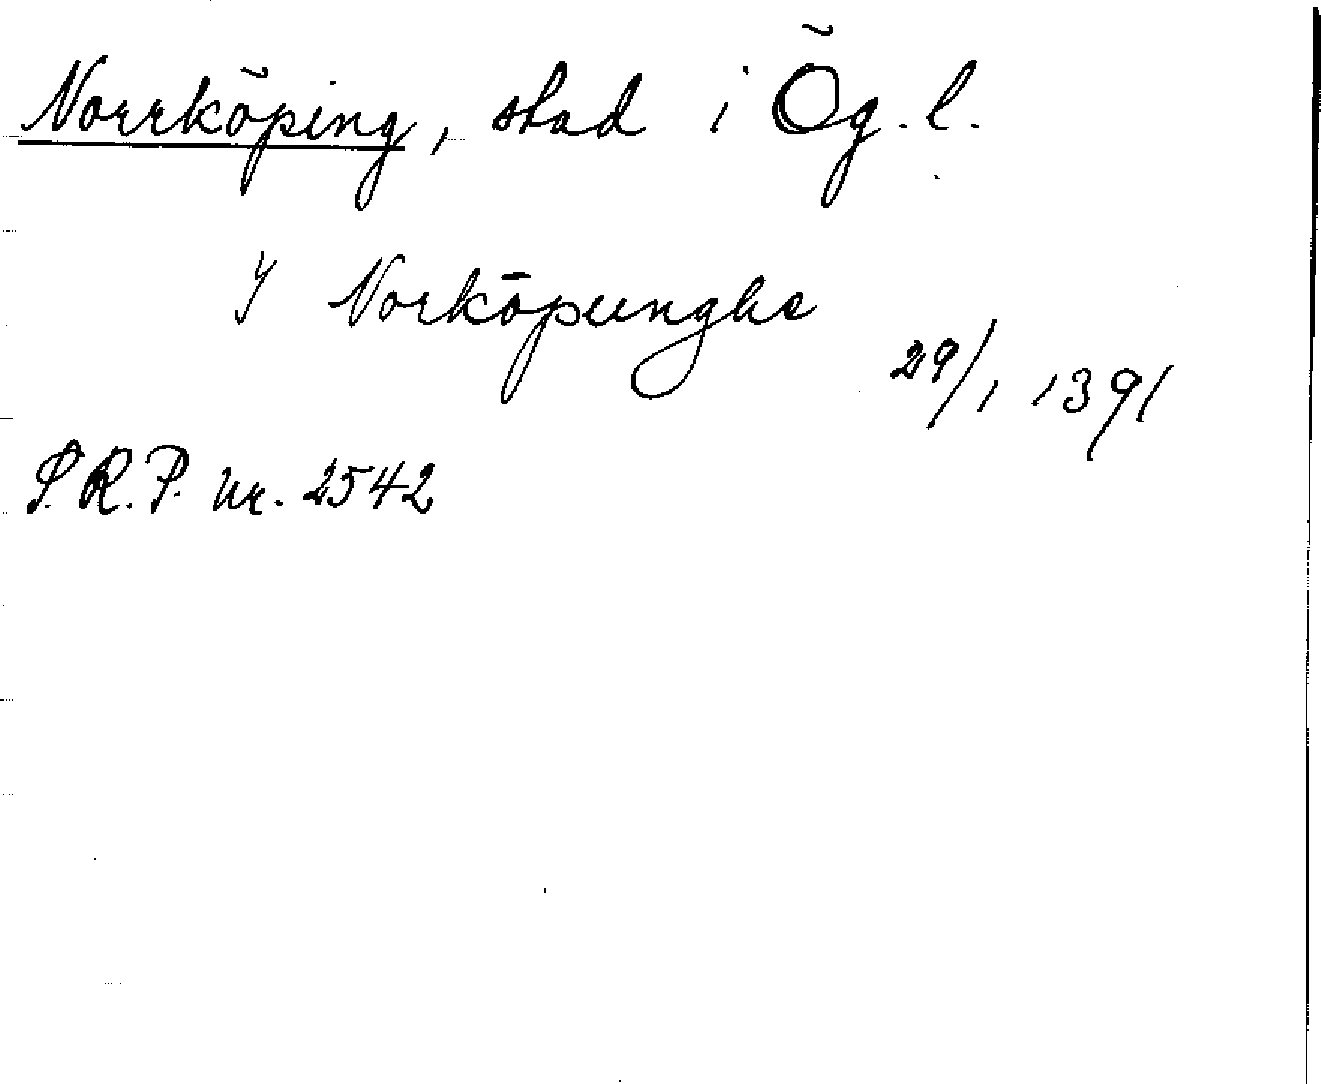 Norrköping, stad i Ög. l.
Y Norköpunghe
29/1 1391
S.R.P. nr. 2542